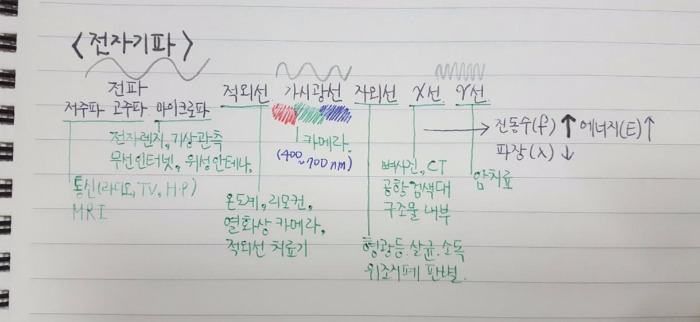 <전자기파>
전파
저주파 고주파 마이크로파
적외선 가시광선 자외선 X선 γ선
→ 진동수(f) ↑ 에너지(E) ↑
파장(λ) ↓
전자렌지, 기상관측
무선인터넷, 위성안테나,
통신(라디오, TV, H.P)
MRI
온도계, 리모컨,
열화상 카메라,
적외선 치료기
카메라.
(400~700nm)
형광등. 살균. 소독
위조지폐 판별.
뼈사진, CT
공항 검색대
구조물 내부
암치료